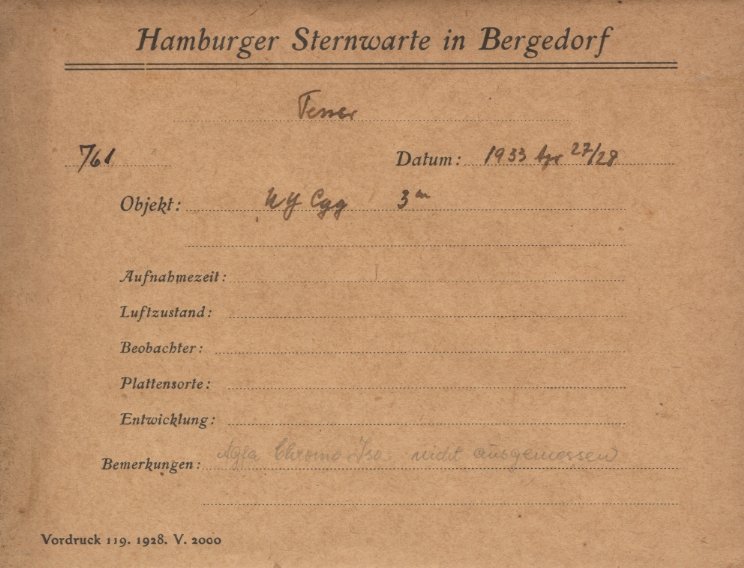 Hamburger Sternwarte in Bergedorf
Tesser
761 Datum: 1933 Apr 27/28
Objekt: Cyg 3ᵐ
Aufnahmezeit:
Luftzustand:
Beobachter:
Plattensorte:
Entwicklung:
Bemerkungen: Agfa Chromo-Iso. nicht ausgemessen
Vordruck 119. 1928. V. 2000